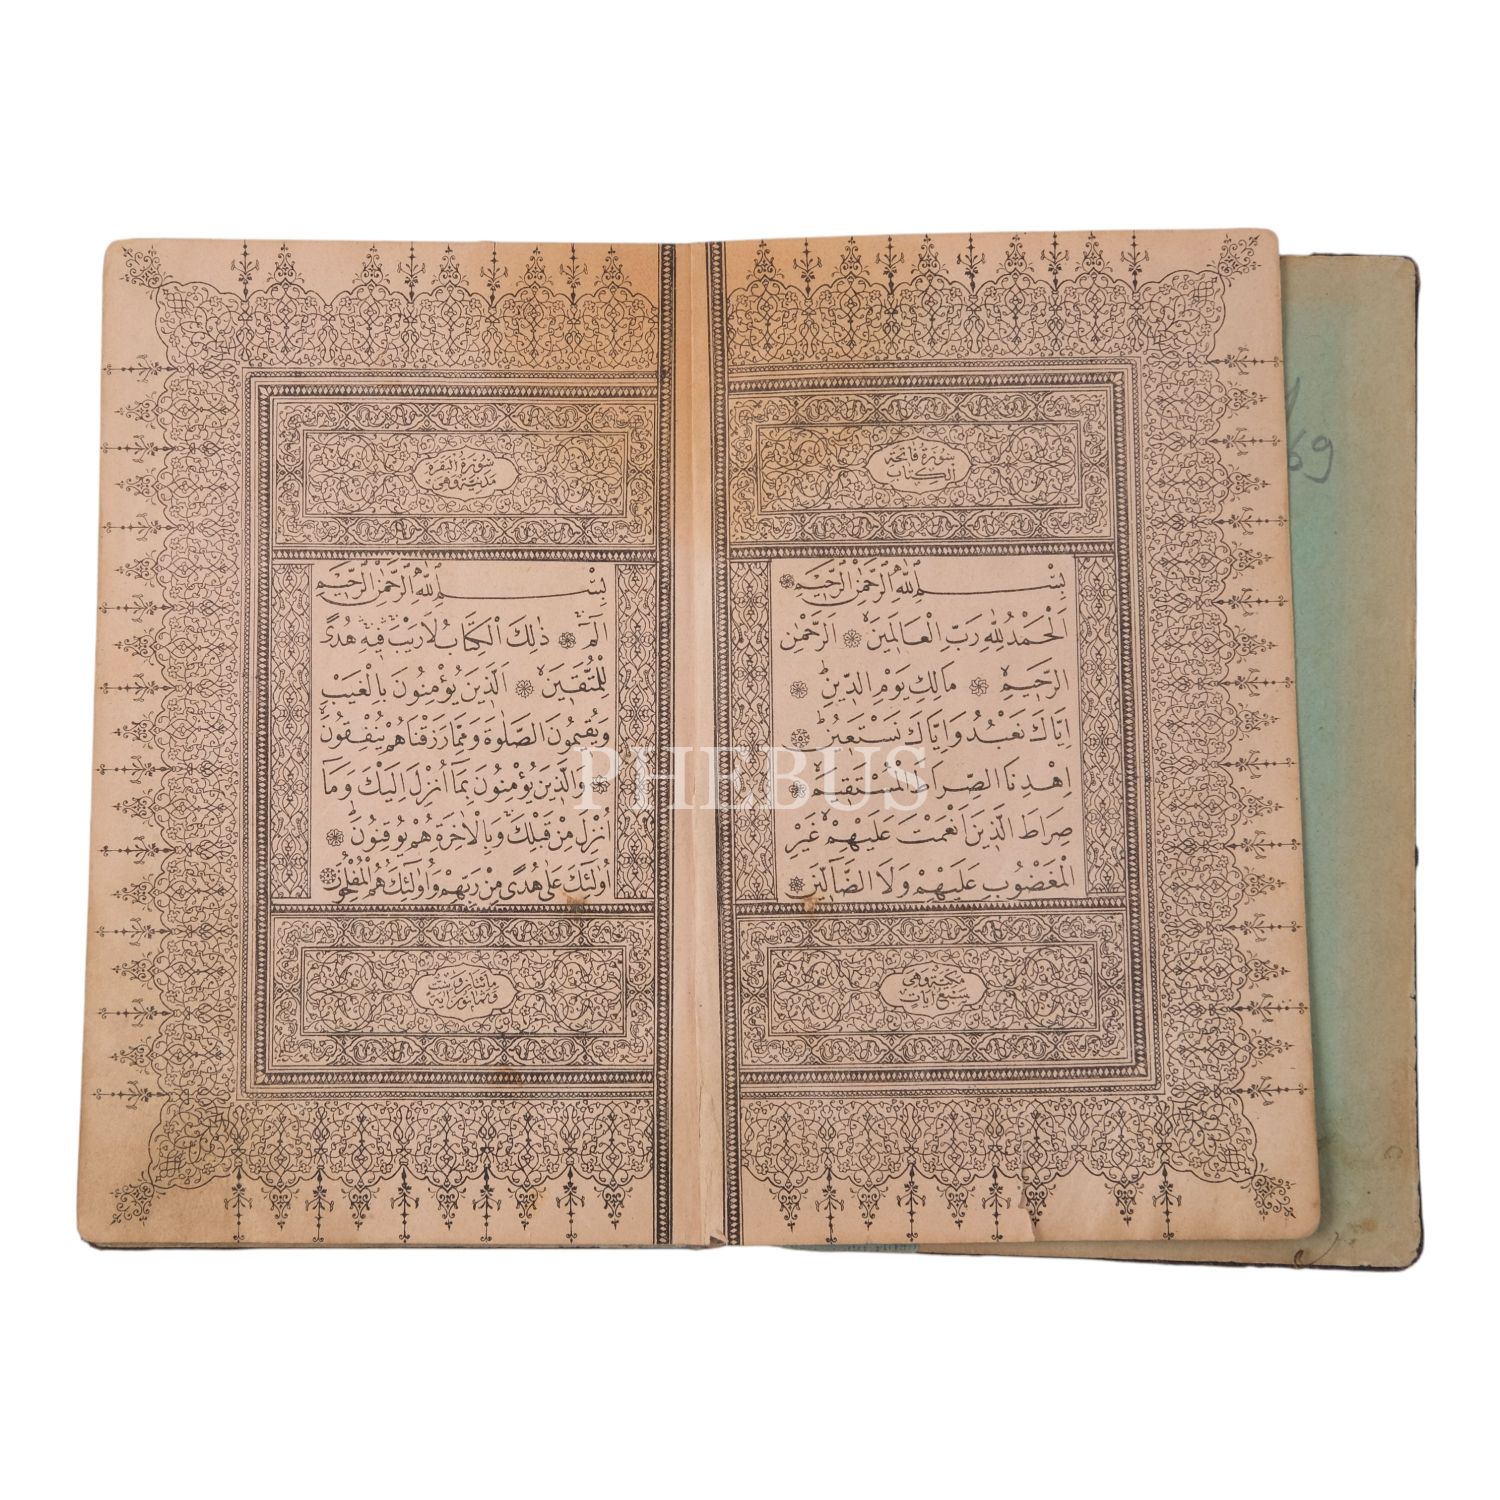 سُورَةُ فَاتِحَةِ
الْكِتَابِ
بِسْمِ اللّٰهِ الرَّحْمٰنِ الرَّحِيمِ
اَلْحَمْدُ لِلّٰهِ رَبِّ الْعَالَمِينَ الرَّحْمٰنِ
الرَّحِيمِ مَالِكِ يَوْمِ الدِّينِ
اِيَّاكَ نَعْبُدُ وَاِيَّاكَ نَسْتَعِينُ
اِهْدِنَا الصِّرَاطَ الْمُسْتَقِيمَ
صِرَاطَ الَّذِينَ اَنْعَمْتَ عَلَيْهِمْ غَيْرِ
الْمَغْضُوبِ عَلَيْهِمْ وَلَا الضَّالِّينَ
مكية وهي
سبع ايات
سُورَةُ الْبَقَرَةِ
مدنية وهي
بِسْمِ اللّٰهِ الرَّحْمٰنِ الرَّحِيمِ
الٓمٓ ذٰلِكَ الْكِتَابُ لَا رَيْبَ فِيهِ هُدًى
لِلْمُتَّقِينَ اَلَّذِينَ يُؤْمِنُونَ بِالْغَيْبِ
وَيُقِيمُونَ الصَّلٰوةَ وَمِمَّا رَزَقْنَاهُمْ يُنْفِقُونَ
وَالَّذِينَ يُؤْمِنُونَ بِمَٓا اُنْزِلَ اِلَيْكَ وَمَٓا
اُنْزِلَ مِنْ قَبْلِكَ وَبِالْاٰخِرَةِ هُمْ يُوقِنُونَ
اُولٰٓئِكَ عَلٰى هُدًى مِنْ رَبِّهِمْ وَاُولٰٓئِكَ هُمُ الْمُفْلِحُونَ
PHEBUS
69